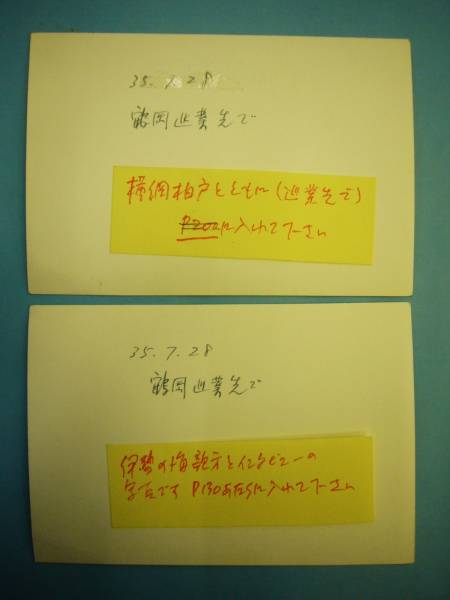 35.7.28
鶴岡巡業先で
横綱柏戸とともに(巡業先で)
P200に入れて下さい
35.7.28
鶴岡巡業先で
伊勢の海親方とインタビューの
写真です P130あたりに入れて下さい